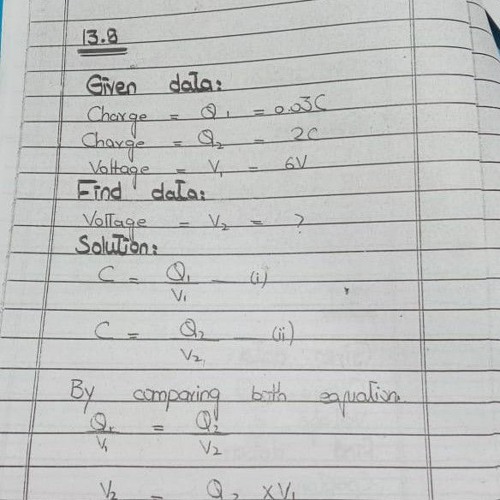 13.8
Given data:
Charge = Q₁ = 0.03C
Charge = Q₂ = 2C
Voltage = V₁ = 6V
Find data:
Voltage = V₂ = ?
Solution:
C = Q₁/V₁ — (i)
C = Q₂/V₂ — (ii)
By comparing both equation.
Q₁/V₁ = Q₂/V₂
V₂ = Q₂ × V₁